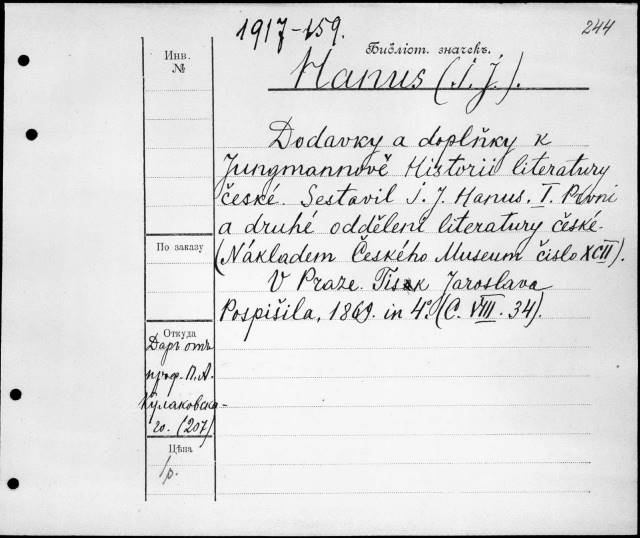 1917-159.
244
Инв.
№
Библіот. значекъ.
Hanus (I. J.).
Dodavky a doplňky k
Jungmannově Historii literatury
české. Sestavil I. J. Hanus. I. První
a druhé oddělení literatury české.
(Nákladem Českého Museum čislo XCII).
V Praze. Tisk Jaroslava
Pospíšila, 1869. in 4°. (C. VIII. 34).
По заказу
Откуда
Даръ отъ
проф. П. А.
Кулаковска-
го. (207)
Цѣна
1р.